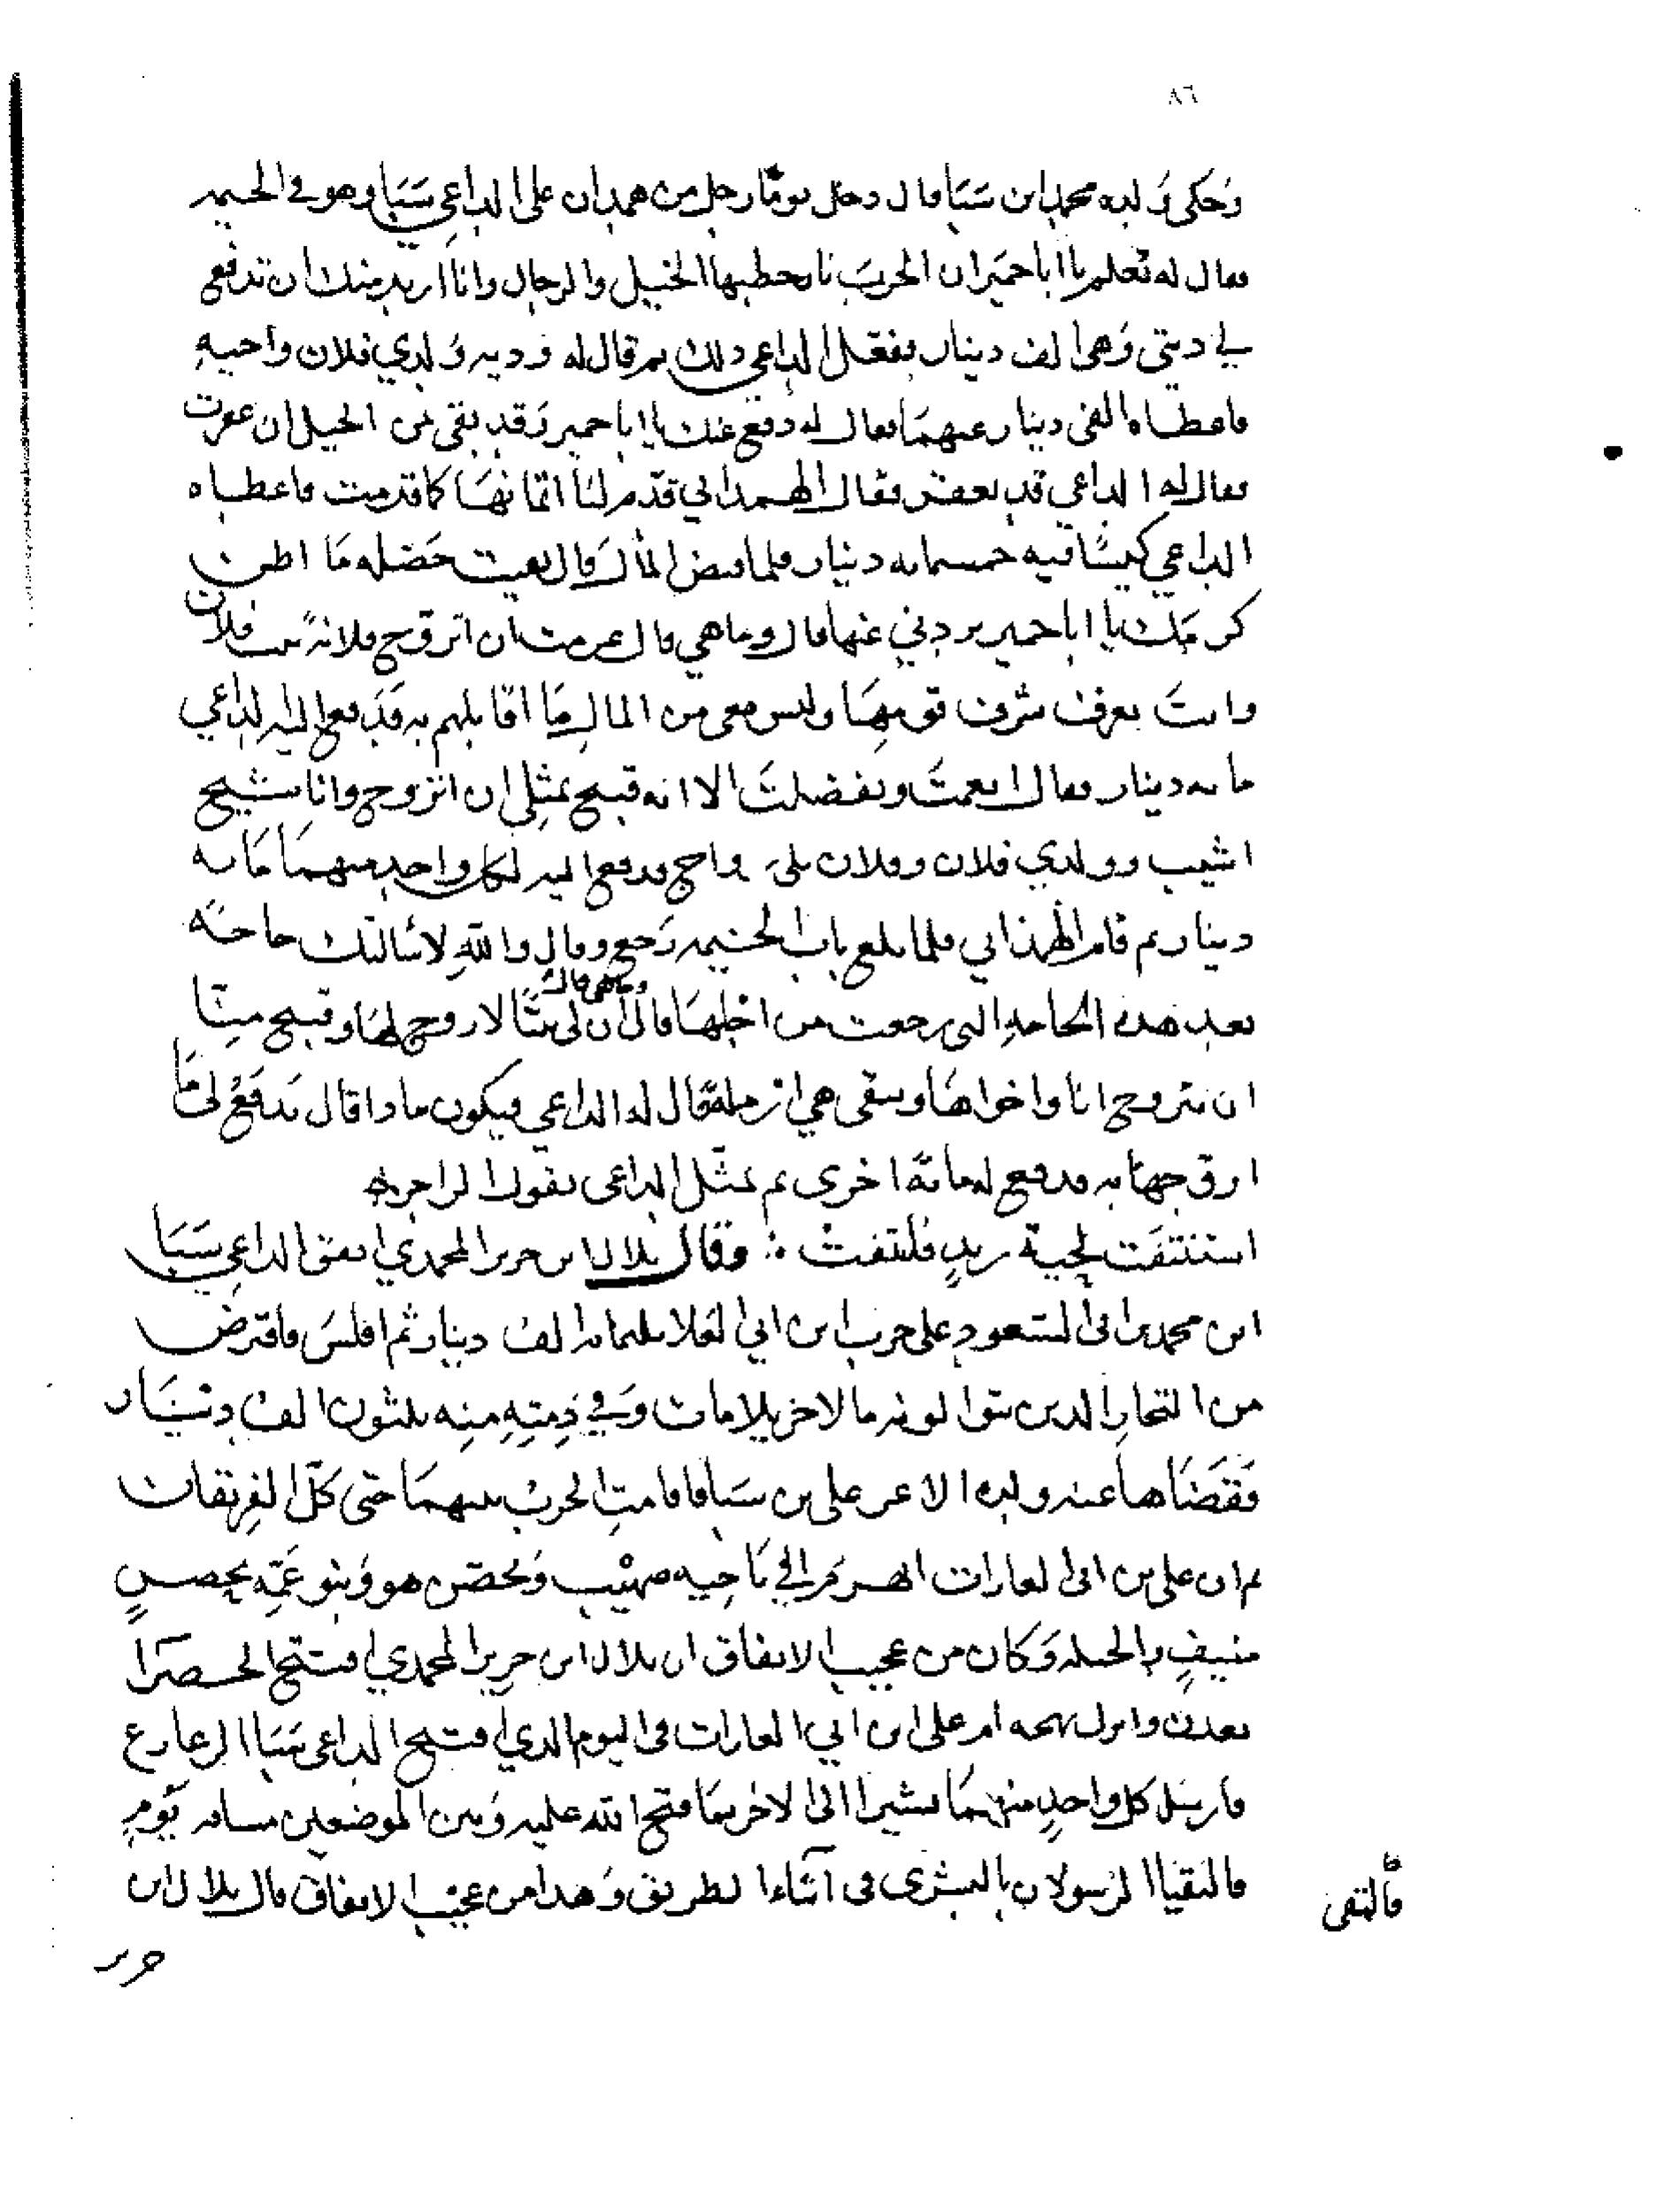 ٨٦
وَحَكى وَلده محمد ابن سَبَا قال دخل يومًا رجل من همدان على الداعي سَبَا وهو في الخيمه
فقال له تعلم يا ابا حمير ان الحربَ نار حطبها الخيل والرجال وانا اريد منك ان تدفع
لي ديتي وَهى الف دينار ففعَل الداعي ذلك ثم قال له وديه وَلدي فلان واخيهِ
فاعطاه الفي دينار عنهمَا فقال له دفع عنك يا ابا حمير وَقد بقى من الخيل ان عقرت
فقال له الداعي قد بعضر فقال الهمداني قدّم لنَا اثمانهَا كما قدمت فاعطاه
الداعي كيسًا فيه خمسمايه دينار فلما قبض المال قال بقيت خصله مَا اظن
كرمك يا ابا حمير يردني عنها قال وما هي قال عزمت ان اتزوج فلانهً بنت فلان
وانتَ تعرف شرف قومهَا وليس معي من المال مَا اقابلهم به فدَفع اليه الداعي
مايه دينار فقال انعمتَ وتفضلتَ الا انه قبيح بمثلِي ان اتزوج وانا شيخ
اشيب وولدي فلان وفلان بلا زواج فدفع اليه لكل واحد منهمَا مَايه
دينار ثم قام الهمداني فلما بلغ باب الخيمه رَجع وقال والله لاسَالتك حاجَه
بعد هذه الحاجهِ التي رجعت من اجْلهَا وما هي قال قال ان لى بنتًا لا زوج لهَا وقبيح مِنّا
ان نتزوج انا واخواهَا وتبقى هي ارملهً قال له الداعي فيكون ماذا قال تَدفَعُ لى مَا
ازوجهَا به فدفع له مائهً اخرى ثم تمثّل الداعى بقول الراجز
استنتفَت لحية زيدٍ فانتفت ∴ وَقال بلال ابن جرير المحمدي انفق الداعِي سَبَا
ابن محمد بن ابى السعود على حرب ابن ابي الغارات ثلثمايه الف دينار ثم افلسَ فاقترض
من التجار الذين يتوالونه مالا جزيلا مات وَفي ذِمتهِ مِنه ثلثون الف دينَار
فَقَضَاها عنه ولده الاعز على بن سَبا فاقامتِ الحربُ بينهمَا حتى كَلّ الفريقان
ثم ان على بن ابى الغارات انهزم الى نَاحِيه صهَيْب وَتحصّن هو وَبنو عَمّه بحصنٍ
منيفٍ والجبله وَكان من عجيب الاتفاق ان بلال ابن جرير المحمدي افتتح الخضرا
بعدن وانزل بهجه ام على ابن ابي الغارات فى اليوم الذي افتتح الداعى سَبَا الزعازع
فارسل كل واحدٍ منهمَا بشيرا الى الاخر بمَا فتح الله عليه وَبين الموضعين مسافه يَوم
فالتقيا الرسولان بالبشرى فى اثناء الطريق وَهذا من عجيب الاتفاق قال بلال ابن
فالتقى
جرير